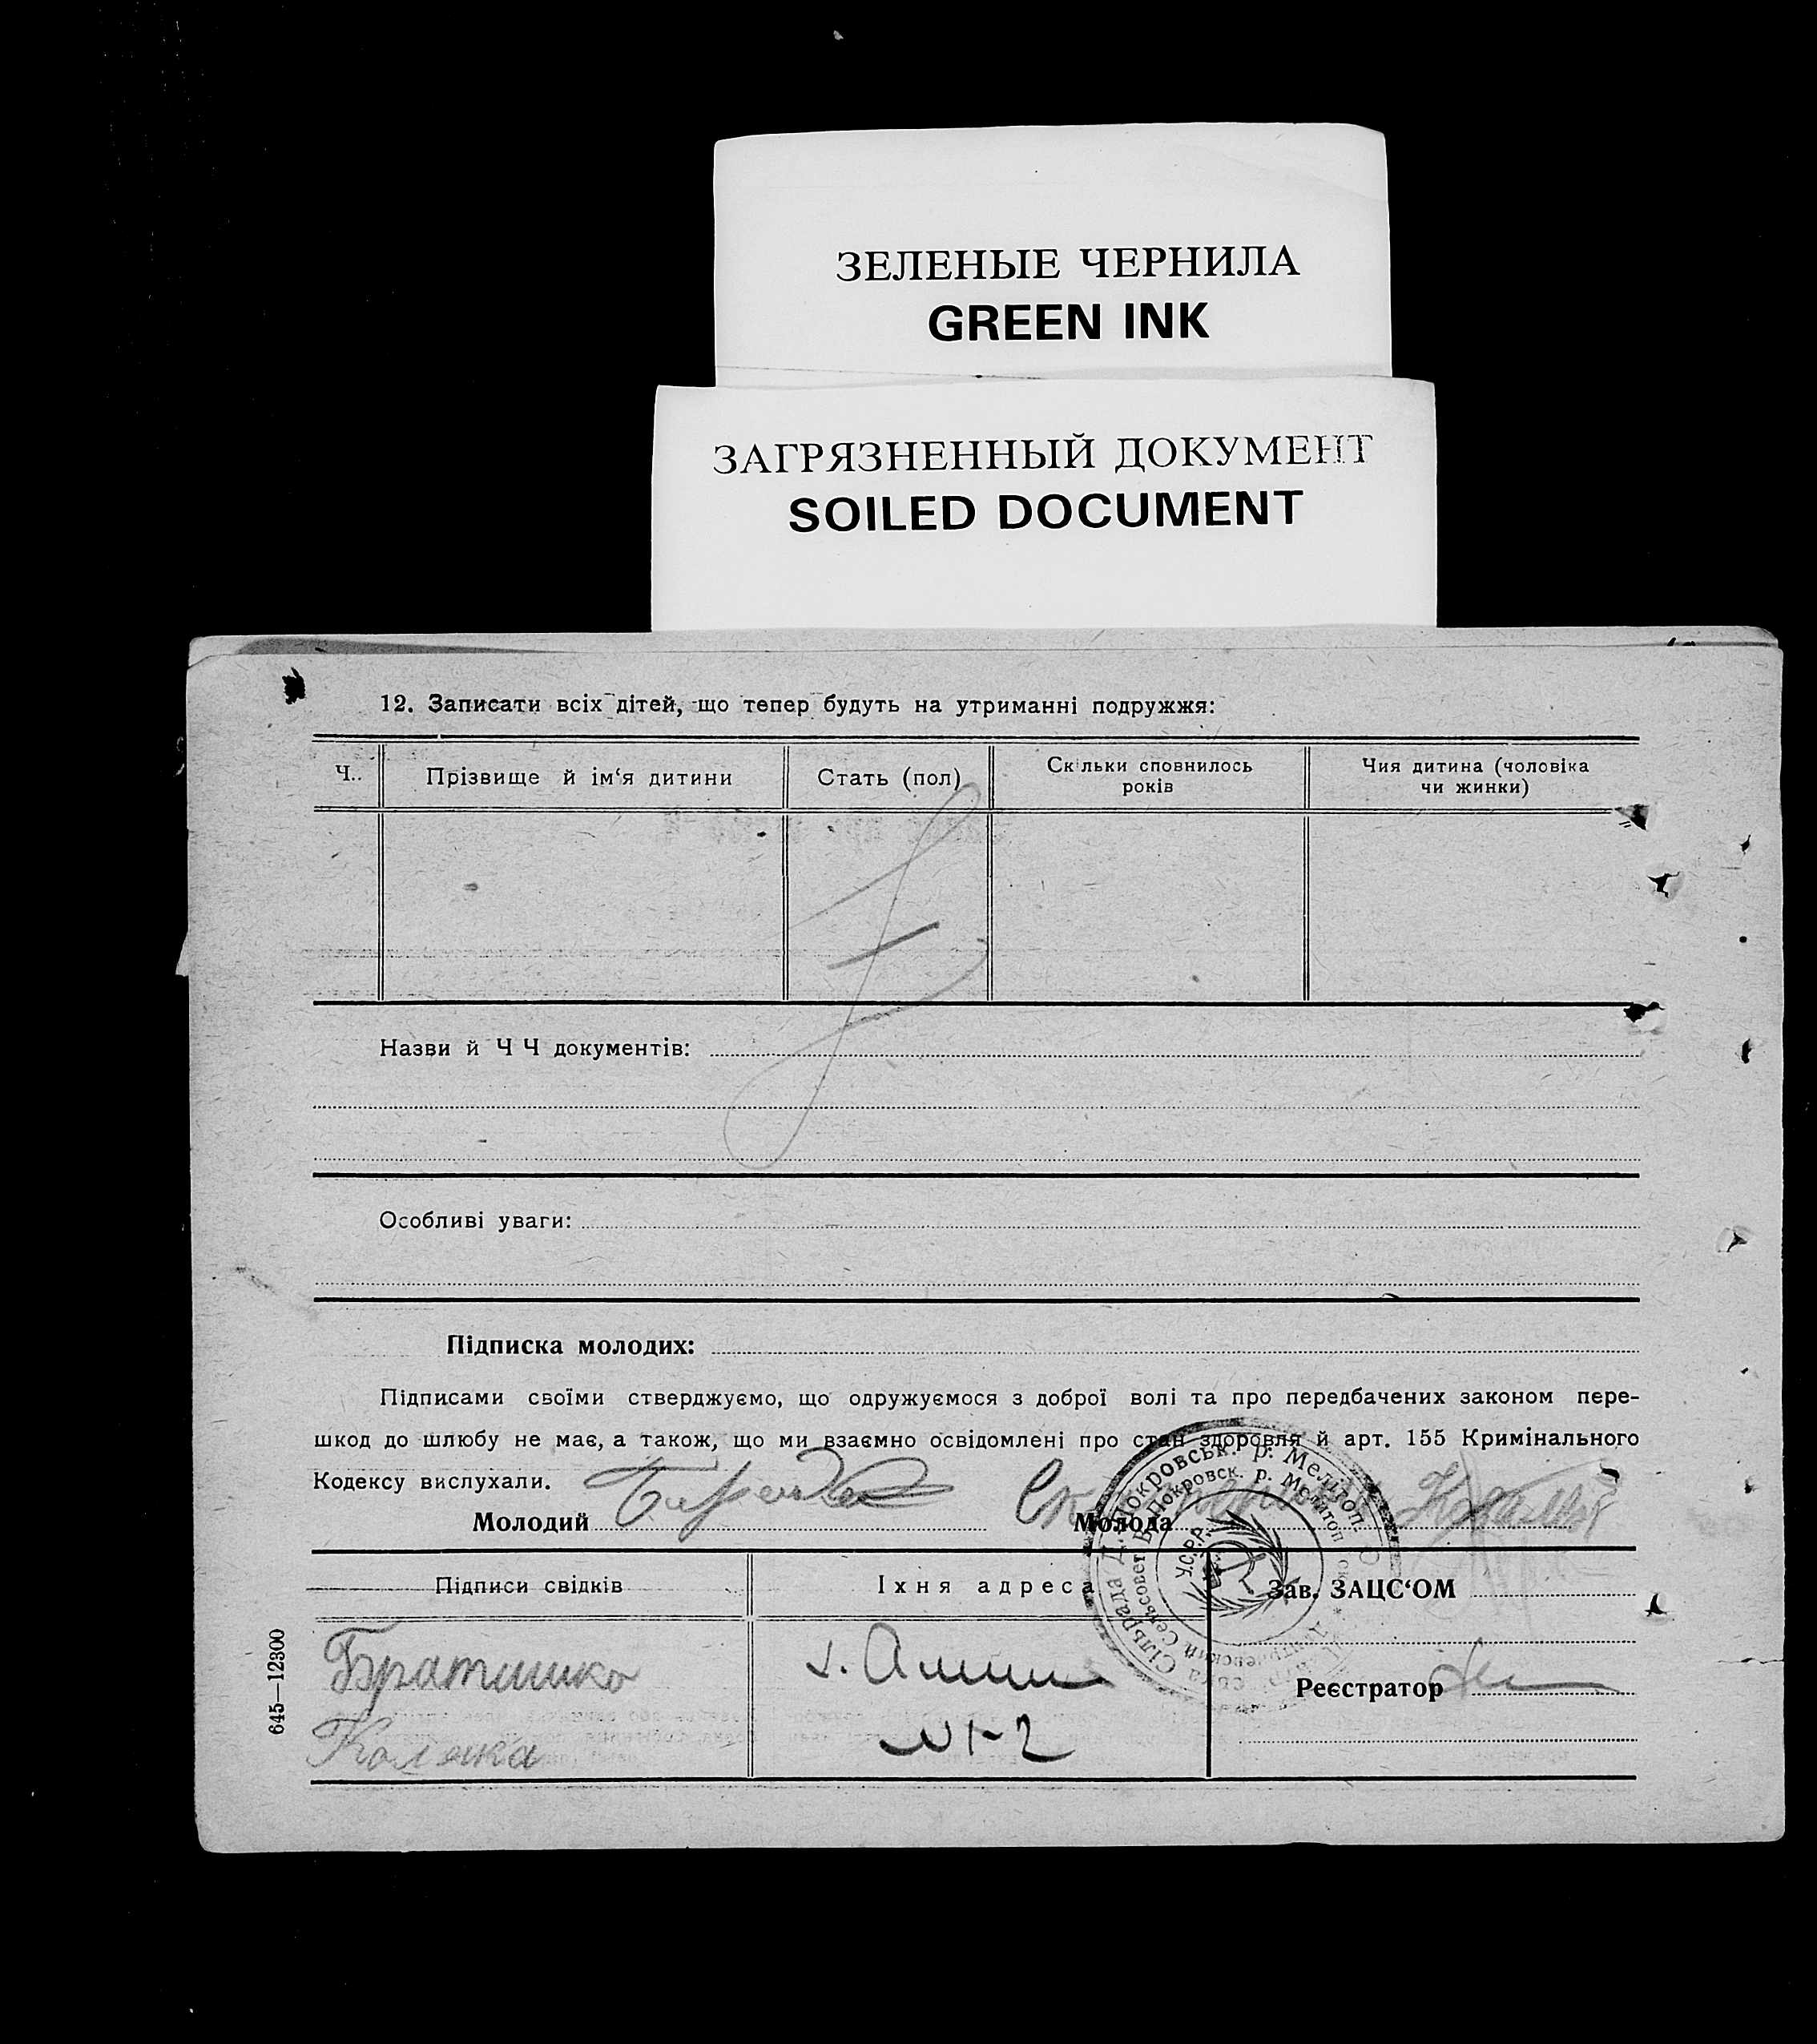 ЗЕЛЕНЫЕ ЧЕРНИЛА
GREEN INK
ЗАГРЯЗНЕННЫЙ ДОКУМЕНТ
SOILED DOCUMENT
12. Записати всіх дітей, що тепер будуть на утриманні подружжя:
Ч.. Прізвище й ім‘я дитини Стать (пол) Скільки сповнилось років Чия дитина (чоловіка чи жинки)
Назви й Ч Ч документів:
Особливі уваги:
Підписка молодих:
Підписами своїми стверджуємо, що одружуємося з доброї волі та про передбачених законом пере-
шкод до шлюбу не має, а також, що ми взаємно освідомлені про стан здоровля й арт. 155 Кримінального
Кодексу вислухали.
Молодий Молода
Покровськ. р. Меліто
Покровск. р. Мелитоп
У.С.Р.Р.
Сільрада
Підписи свідків Їхня адреса Зав. ЗАЦС‘ОМ
Братишко
Реєстратор
№1-2
645—12300